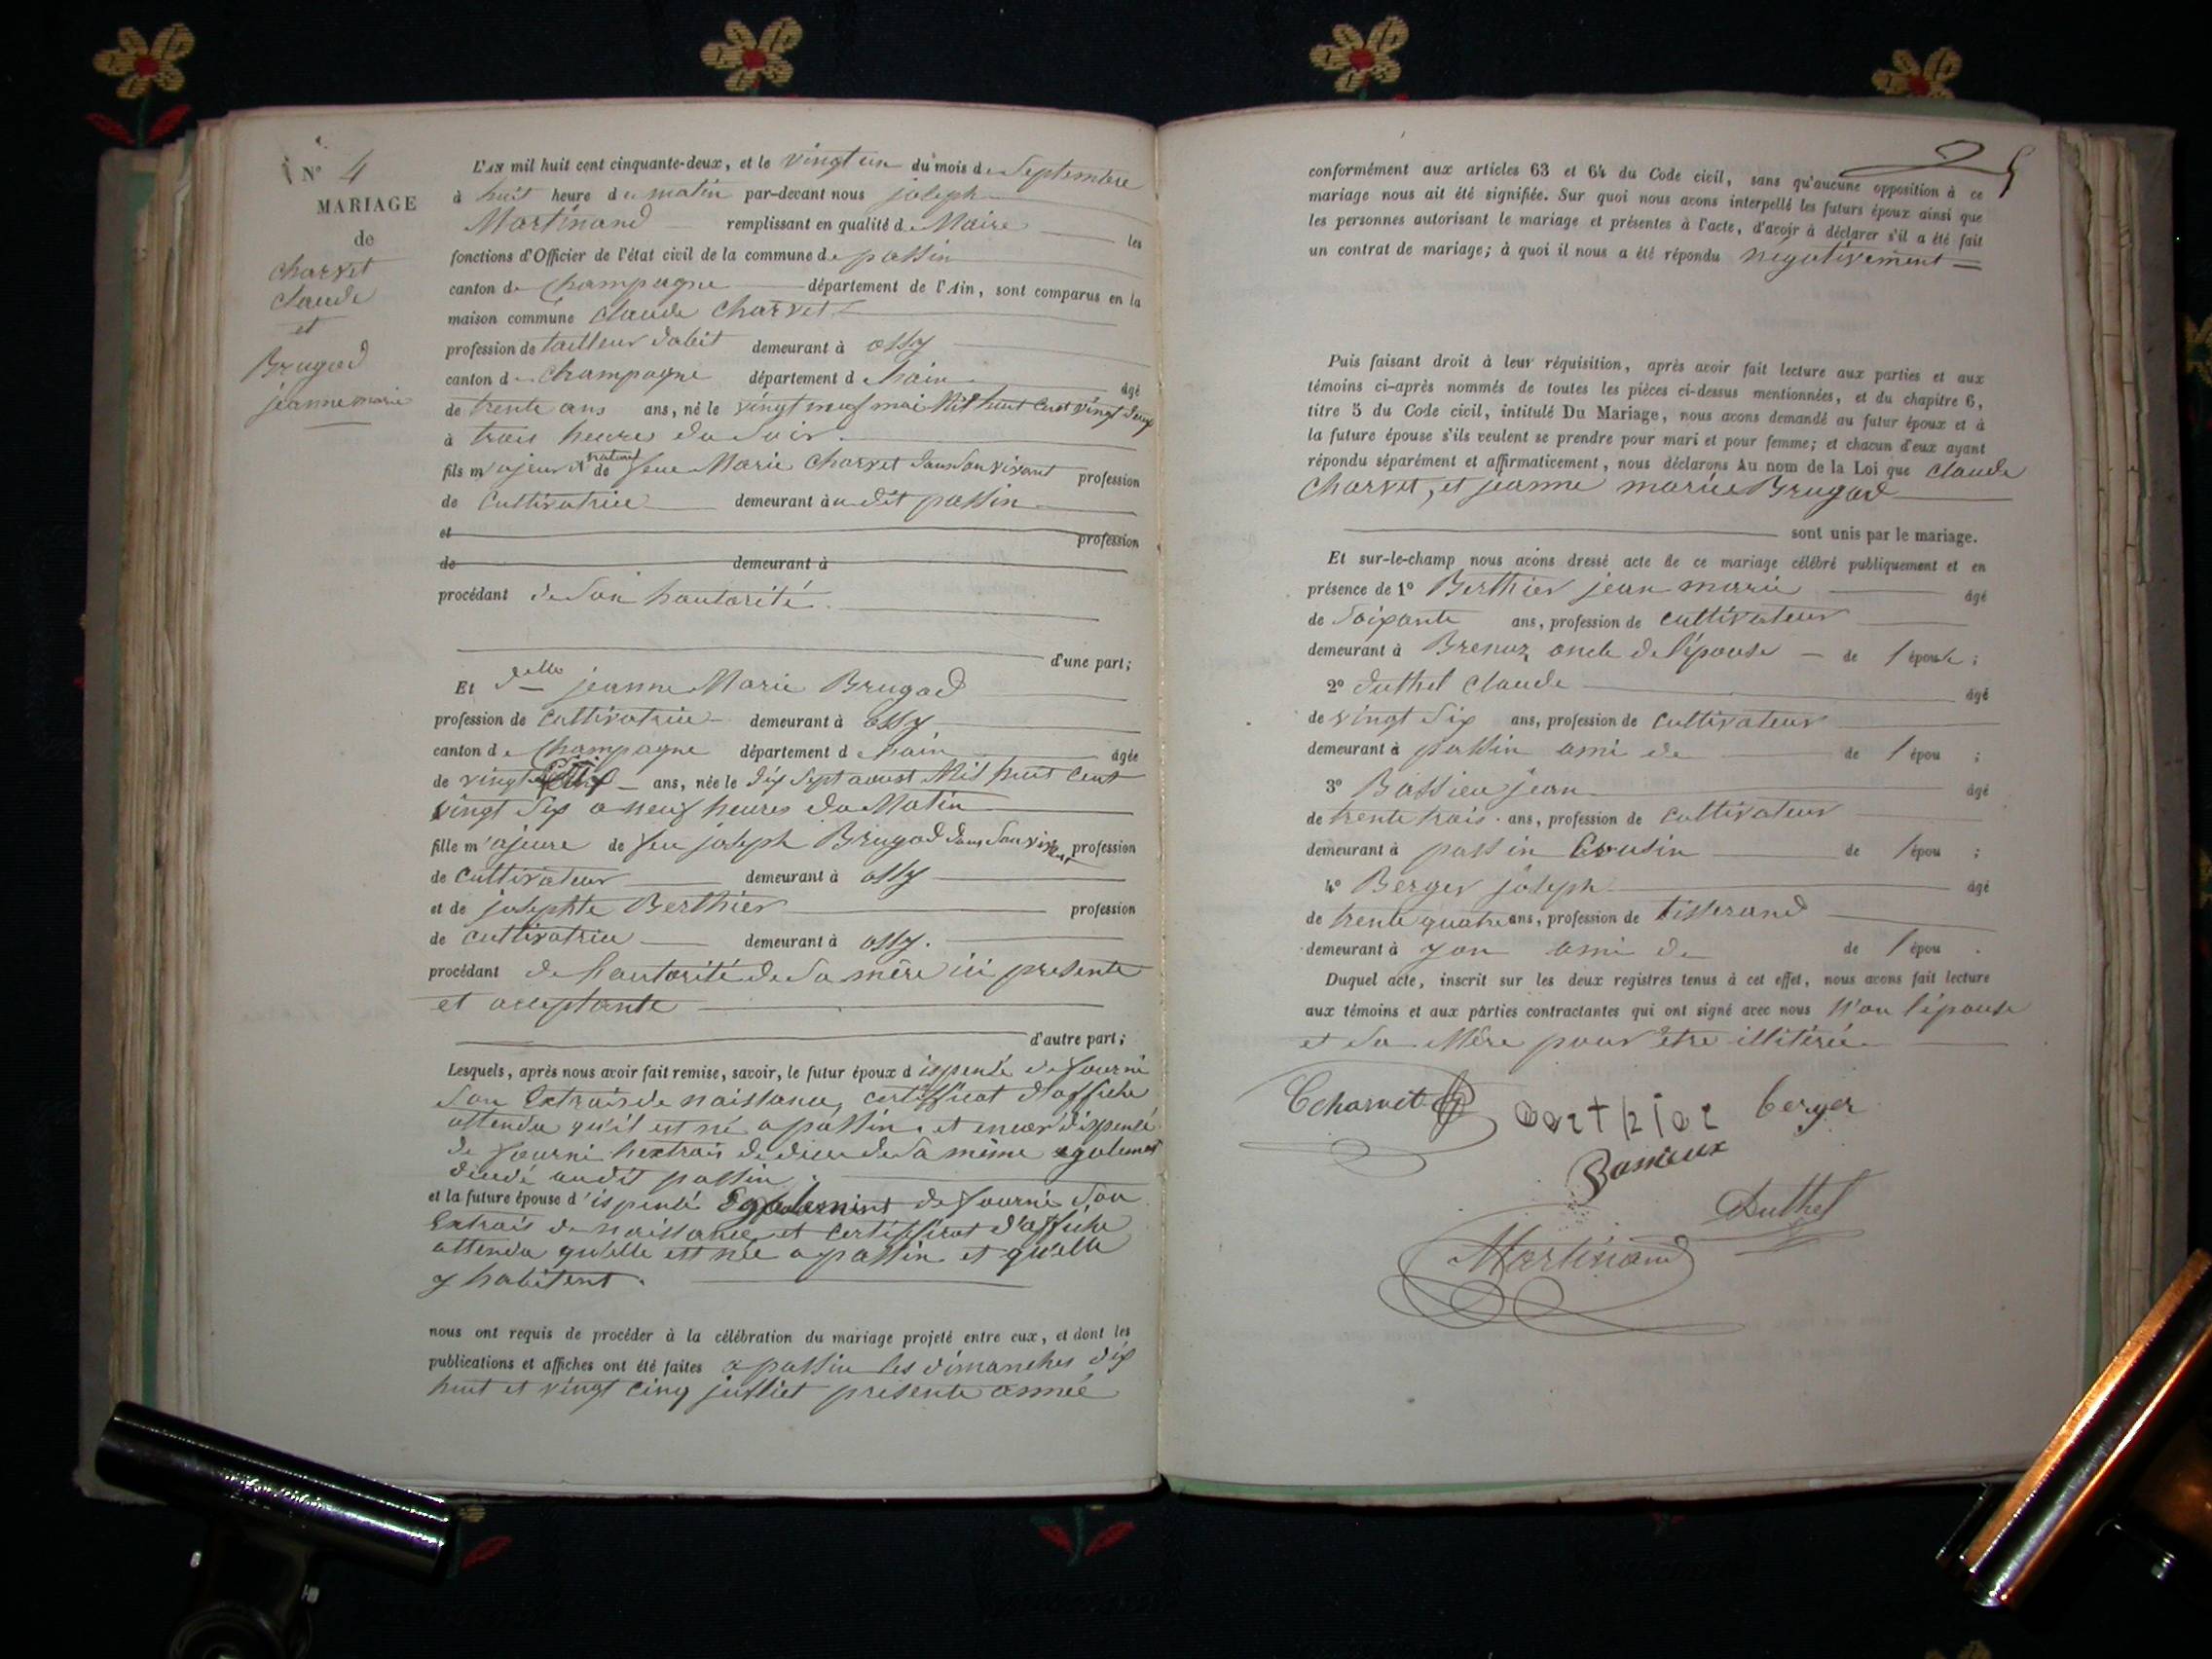 N° 4
MARIAGE
de
charvet
claude
et
Brugod
jeanne marie
L'AN mil huit cent cinquante-deux, et le vingt un du mois de Septembre
à huit heure du matin par-devant nous joseph
Martinand remplissant en qualité de Maire les
fonctions d'Officier de l'état civil de la commune de passin
canton de Champagne département de l'Ain, sont comparus en la
maison commune claude Charvet
profession de tailleur dabit demeurant à ossy
canton de champagne département d hain âgé
de trente ans ans, né le vingt neuf mai Mil huit Cent vingt deux
à trois heures du Soir.
fils majeur et naturel de feue Marie Charvet dans Son vivant profession
de Cultivatrice demeurant au dit passin
et profession
de demeurant à
procédant de Son hautorité.
d'une part;
Et delle jeanne Marie Brugod
profession de Cultivatrice demeurant à ossy
canton de Champagne département d hain âgée
de vingt Six ans, née le dix Sept aoust Mil huit Cent
vingt Six a neuf heures du Matin
fille majeure de feu joseph Brugod dans Son vivant profession
de Cultivateur demeurant à ossy
et de josephte Berthier profession
de cultivatrice demeurant à ossy.
procédant de l'hautorité de Sa mère ici presente
et acceptante
d'autre part;
Lesquels, après nous avoir fait remise, savoir, le futur époux dispensé de fourni
Son Extrais de naissance, certifficat d'affiche
attendu qu'il est né a passin, et encor dispensé
de fourni hextrais de de Sa mème egalement
audit passin.
et la future épouse dispensé Egalement de fourni Son
Extrais de naissance et certifficat d'affiche
attendu qu'elle est née a passin et qu'elle
y habitent.
nous ont requis de procéder à la célébration du mariage projeté entre eux, et dont les
publications et affiches ont été faites a passin les dimanches dix
huit et vingt cinq juilliet presente année
25
conformément aux articles 63 et 64 du Code civil, sans qu'aucune opposition à ce
mariage nous ait été signifiée. Sur quoi nous avons interpellé les futurs époux ainsi que
les personnes autorisant le mariage et présentes à l'acte, d'avoir à déclarer s'il a été fait
un contrat de mariage; à quoi il nous a été répondu négativement
Puis faisant droit à leur réquisition, après avoir fait lecture aux parties et aux
témoins ci-après nommés de toutes les pièces ci-dessus mentionnées, et du chapitre 6,
titre 5 du Code civil, intitulé Du Mariage, nous avons demandé au futur époux et à
la future épouse s'ils veulent se prendre pour mari et pour femme; et chacun d'eux ayant
répondu séparément et affirmativement, nous déclarons Au nom de la Loi que claude
Charvet, et jeanne marie Brugod
sont unis par le mariage.
Et sur-le-champ nous avons dressé acte de ce mariage célébré publiquement et en
présence de 1° Berthier jean marie âgé
de Soixante ans, profession de cultivateur
demeurant à Brenaz oncle de l'épouse de l'épouse;
2° duthel claude âgé
de vingt Six ans, profession de Cultivateur
demeurant à passin ami de de l'épou ;
3° Bassieu jean âgé
de trente trois ans, profession de Cultivateur
demeurant à passin Cousin de l'épou ;
4° Berger joseph âgé
de trente quatre ans, profession de tisserand
demeurant à yon ami de de l'épou .
Duquel acte, inscrit sur les deux registres tenus à cet effet, nous avons fait lecture
aux témoins et aux parties contractantes qui ont signé avec nous N'on l'épouse
et Sa Mère pour être illitéré
Ccharvet berthier berger
Bassieux
Duthel
Martinand